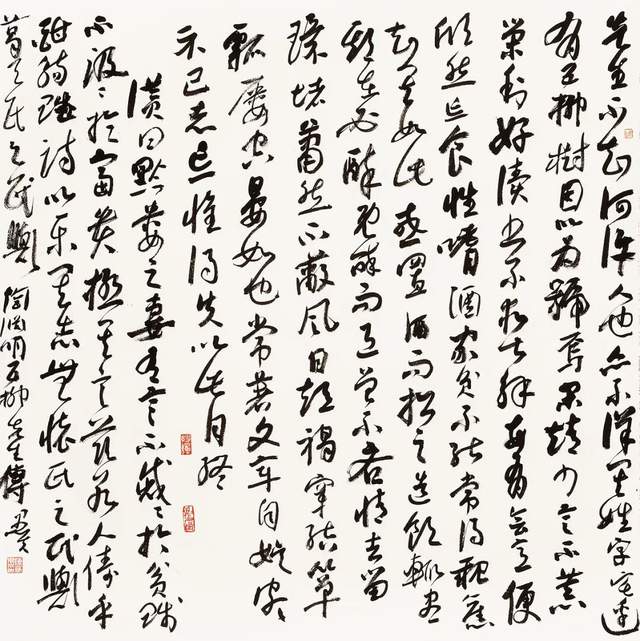 先生不知何許人也亦不詳其姓字宅邊
有五柳樹因以為號焉閑靖少言不慕
榮利好讀書不求甚解每有會意便
欣然忘食性嗜酒家貧不能常得親舊
知其如此或置酒而招之造飲輒盡
期在必醉既醉而退曾不吝情去留
環堵蕭然不蔽風日短褐穿結簞
瓢屢空晏如也常著文章自娛頗
示己志忘懷得失以此自終
贊曰黔婁之妻有言不戚戚於貧賤
不汲汲於富貴極其言茲若人儔乎
酣觴賦詩以樂其志無懷氏之民歟
葛天氏之民歟 陶淵明五柳先生傳